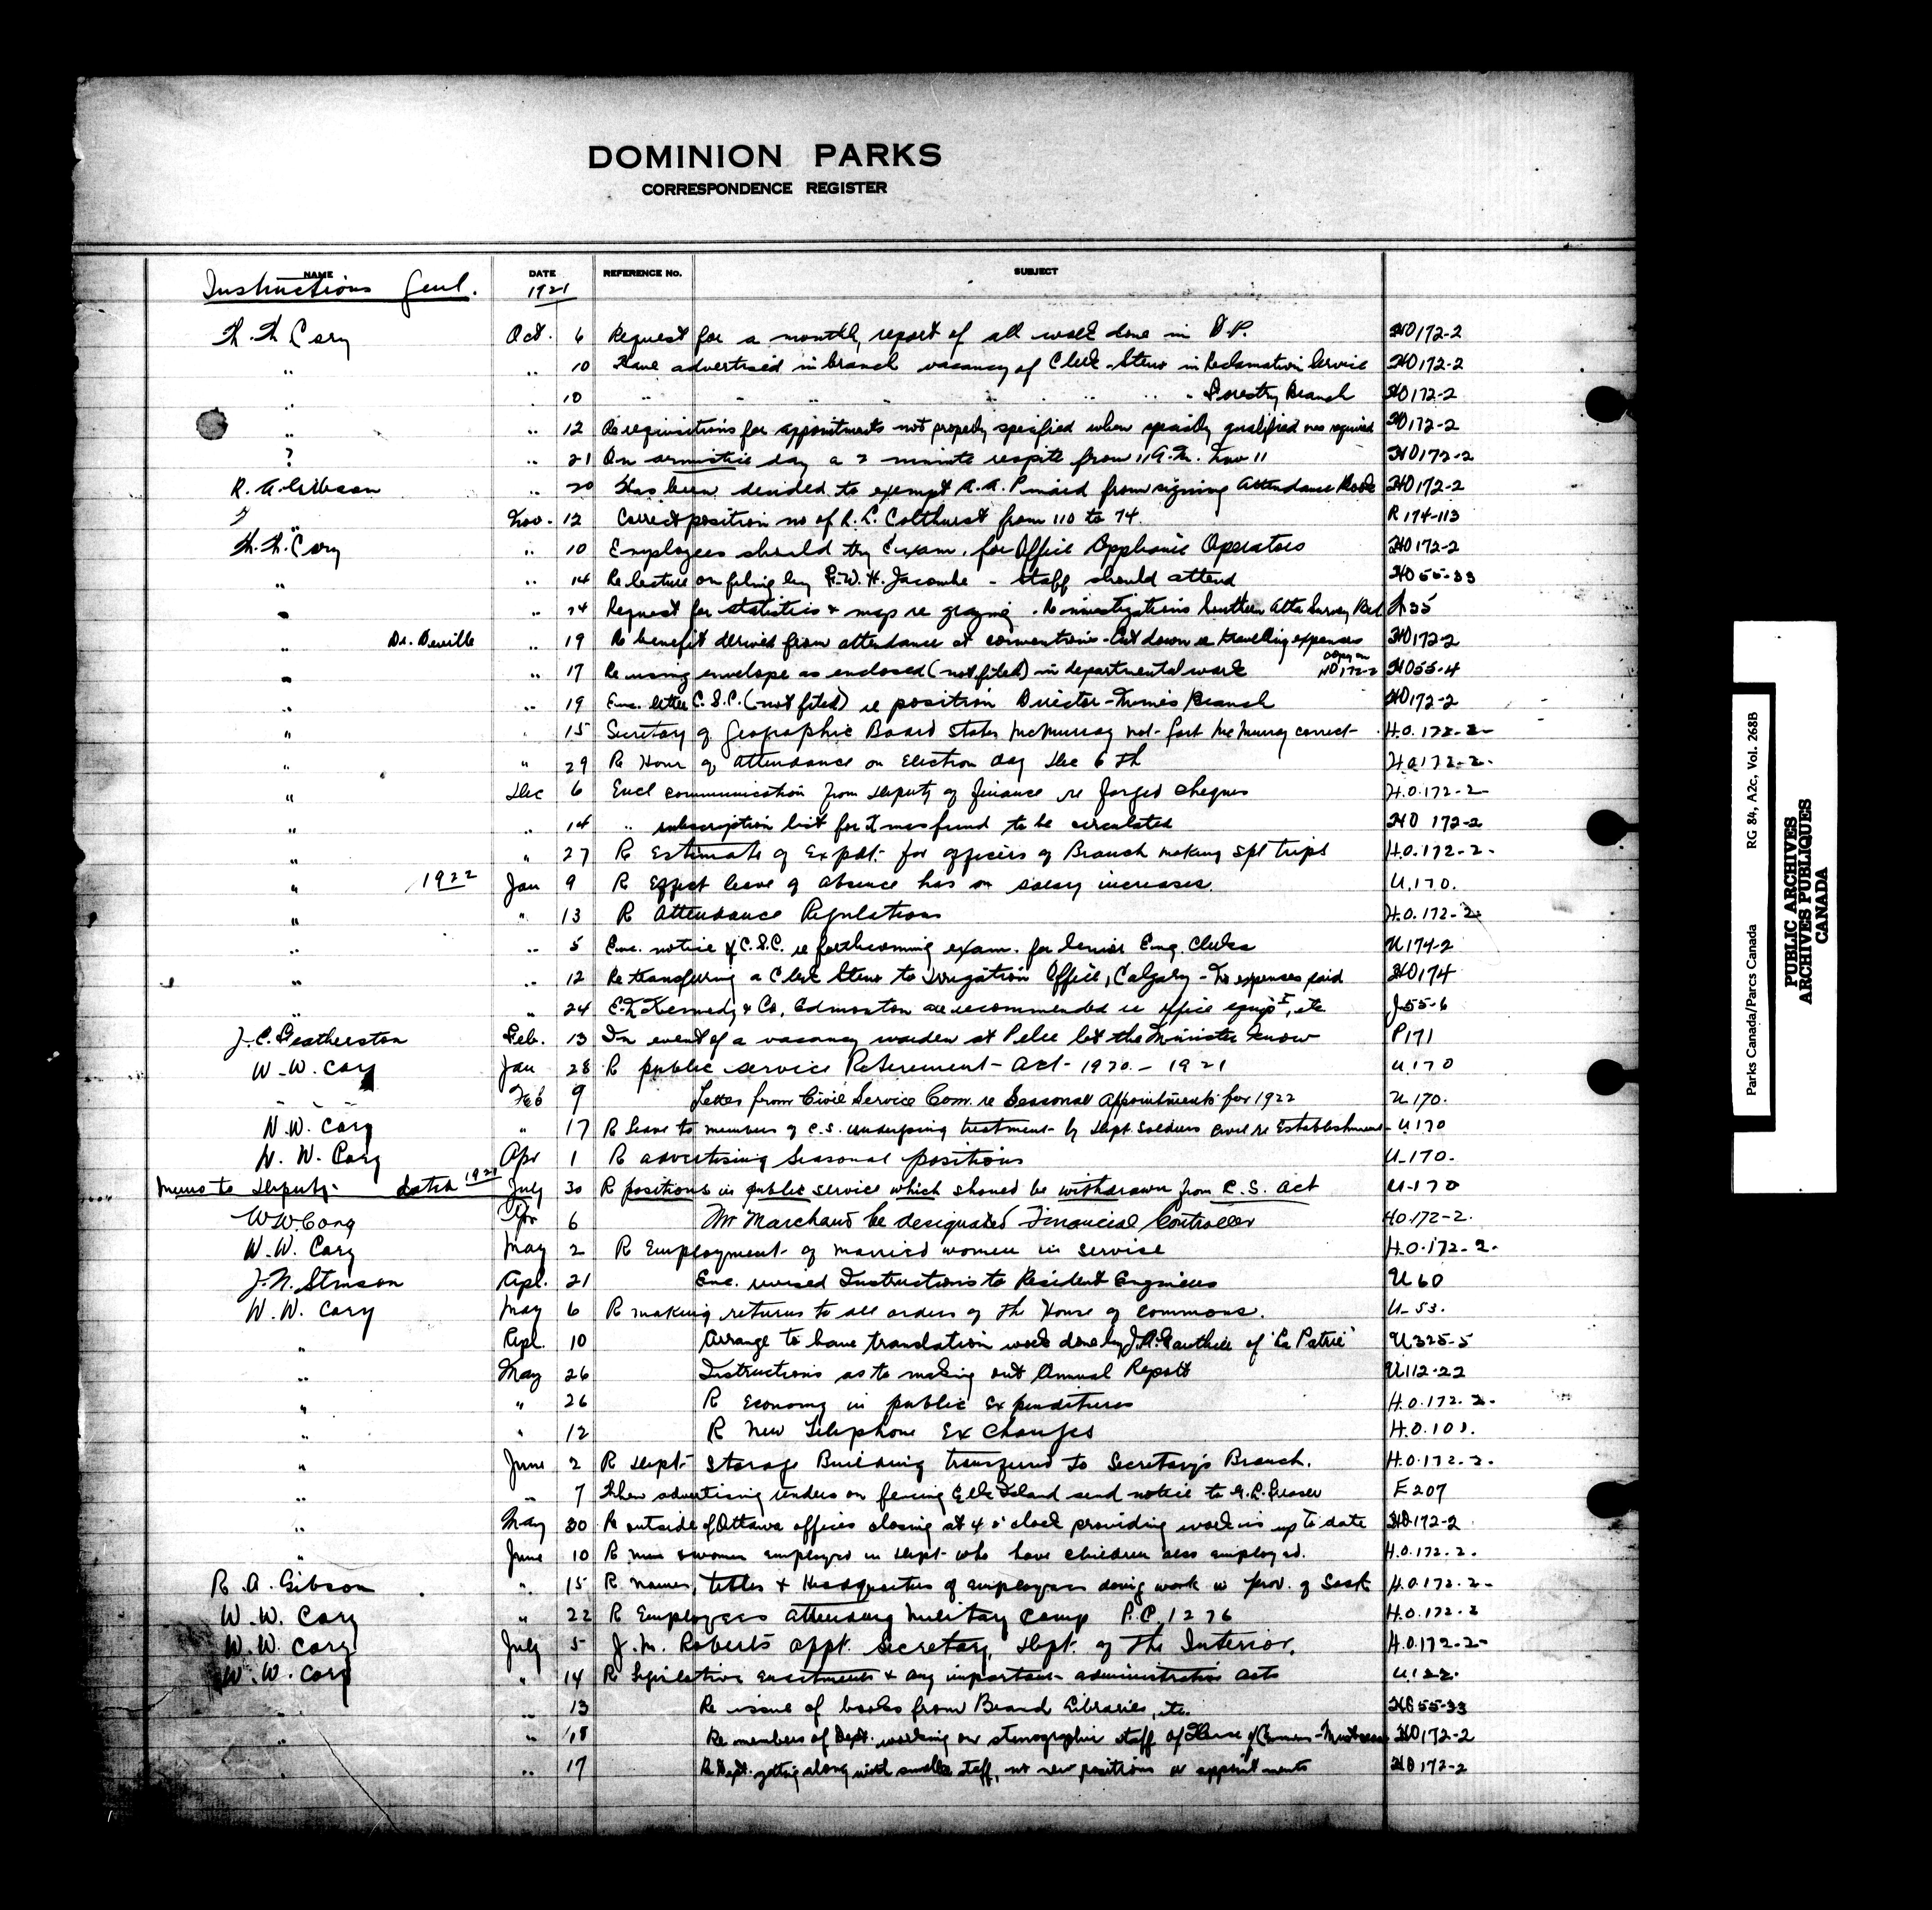 DOMINION PARKS
CORRESPONDENCE REGISTER
NAME DATE REFERENCE No. SUBJECT
Instructions Genl. 1921
W. W. Cory Oct. 6 Request for a monthly report of all work done in D.P. HO172-2
" " 10 Have advertised in branch vacancy of Clerk-Steno in Reclamation Service HO172-2
" " 10 " " " " " " " " Forestry Branch HO172-2
" " 12 Re requisitions for appointments not properly specified when specially qualified men required HO172-2
? " 21 On armistice day a 2 minute respite from 11 A.M. Nov 11 HO172-2
R. A. Gibson " 20 Has been decided to exempt A. A. Pinard from signing Attendance Book HO172-2
" Nov. 12 Correct position no of R. L. Colthurst from 110 to 74. R 174-113
W. W. Cory " 10 Employees should try Exam. for Office Appliance Operators HO172-2
" " 14 Re lecture on filing by F. W. H. Jacombe - staff should attend HO55-33
" " 24 Request for statistics & map re grazing. Re investigations Southern Alta Survey Bd 35
" Dr. Deville " 19 Re benefit derived from attendance at conventions - Cut down re travelling expenses HO172-2
" " 17 Re using envelope as enclosed (not filed) in departmental work copy on HO172-2 HO55-4
" " 19 Enc. letter C.S.C. (not filed) re position Director - Mines Branch HO172-2
" " 15 Secretary of Geographic Board states McMurray not Fort McMurray correct H.O. 172-2
" " 29 R Hour of attendance on Election day Dec 6th H.O.172-2.
" Dec 6 Encl communication from Deputy of Finance re forged cheques H.O.172-2
" " 14 " subscription list for Xmas fund to be circulated HO 172-2
" " 27 R Estimate of Expdt. for officers of Branch making spl trips H.O.172-2.
" 1922 Jan 9 R Effect leave of absence has on salary increases. U.170.
" " 13 R Attendance Regulations H.O.172-2
" " 5 Enc. notice of C.S.C. re forthcoming exam. for Senior Eng. Clerks U174-2
" " 12 Re transferring a Clerk Steno to Irrigation Office, Calgary - No expenses paid HO174
" " 24 E. L. Kennedy & Co, Edmonton are recommended re office equipt, etc J55-6
J. C. Featherston Feb. 13 In event of a vacancy warden at Pelee let the Minister know P171
W. W. Cory Jan 28 R public service Retirement Act - 1920 - 1921 U170
" " Feb 9 Letter from Civil Service Com. re Seasonal Appointments for 1922 U 170.
W. W. Cory " 17 R leave to members of C.S. undergoing treatment by Dept. Soldiers Civil re Establishment U170
W. W. Cory Apr 1 R advertising Seasonal positions U-170.
Memo to Deputy dated 1921 July 30 R positions in public service which should be withdrawn from C.S. Act U-170
W.W. Cory Apr 6 Mr Marchand be designated Financial Controller HO.172-2.
W. W. Cory May 2 R Employment of married women in service H.O.172-2.
J. N. Stinson Apl. 21 Enc. revised Instructions to Resident Engineers U60
W. W. Cory May 6 R making returns to all orders of the House of Commons. U-53.
" Apl. 10 Arrange to have translation work done by J. A. Gauthier of 'La Patrie' U325-5
" May 26 Instructions as to making out Annual Report U112-22
" " 26 R Economy in public Expenditures H.O.172.2.
" " 12 R New Telephone Exchanges H.O.101.
" June 2 R Dept. Storage Building transferred to Secretary's Branch. H.O.172-2.
" " 7 When advertising tenders on fencing Elk Island send notice to E207
" May 30 Re outside of Ottawa offices closing at 4 o'clock providing work is up to date HO172-2
" June 10 R men & women employed in Dept. who have children also employed. H.O.172.2.
R. A. Gibson " 15 R names, titles & Headquarters of employees doing work in prov. of Sask H.O.172.2-
W. W. Cory " 22 R Employees attending Military Camp P.C. 1276 H.O.172-2
W. W. Cory July 5 J. M. Roberts appt. Secretary, Dept. of The Interior. H.O.172-2-
W. W. Cory " 14 R Legislative enactments & any important administration acts U.122.
" " 13 Re issue of books from Branch Libraries, etc. HO55-33
" " 18 Re members of Dept. working on stenographic staff of House of Commons HO172-2
" " 17 Re Dept. getting along with smaller staff, no new positions or appointments HO172-2
Parks Canada/Parcs Canada RG 84, A2c, Vol. 268B
PUBLIC ARCHIVES
ARCHIVES PUBLIQUES
CANADA